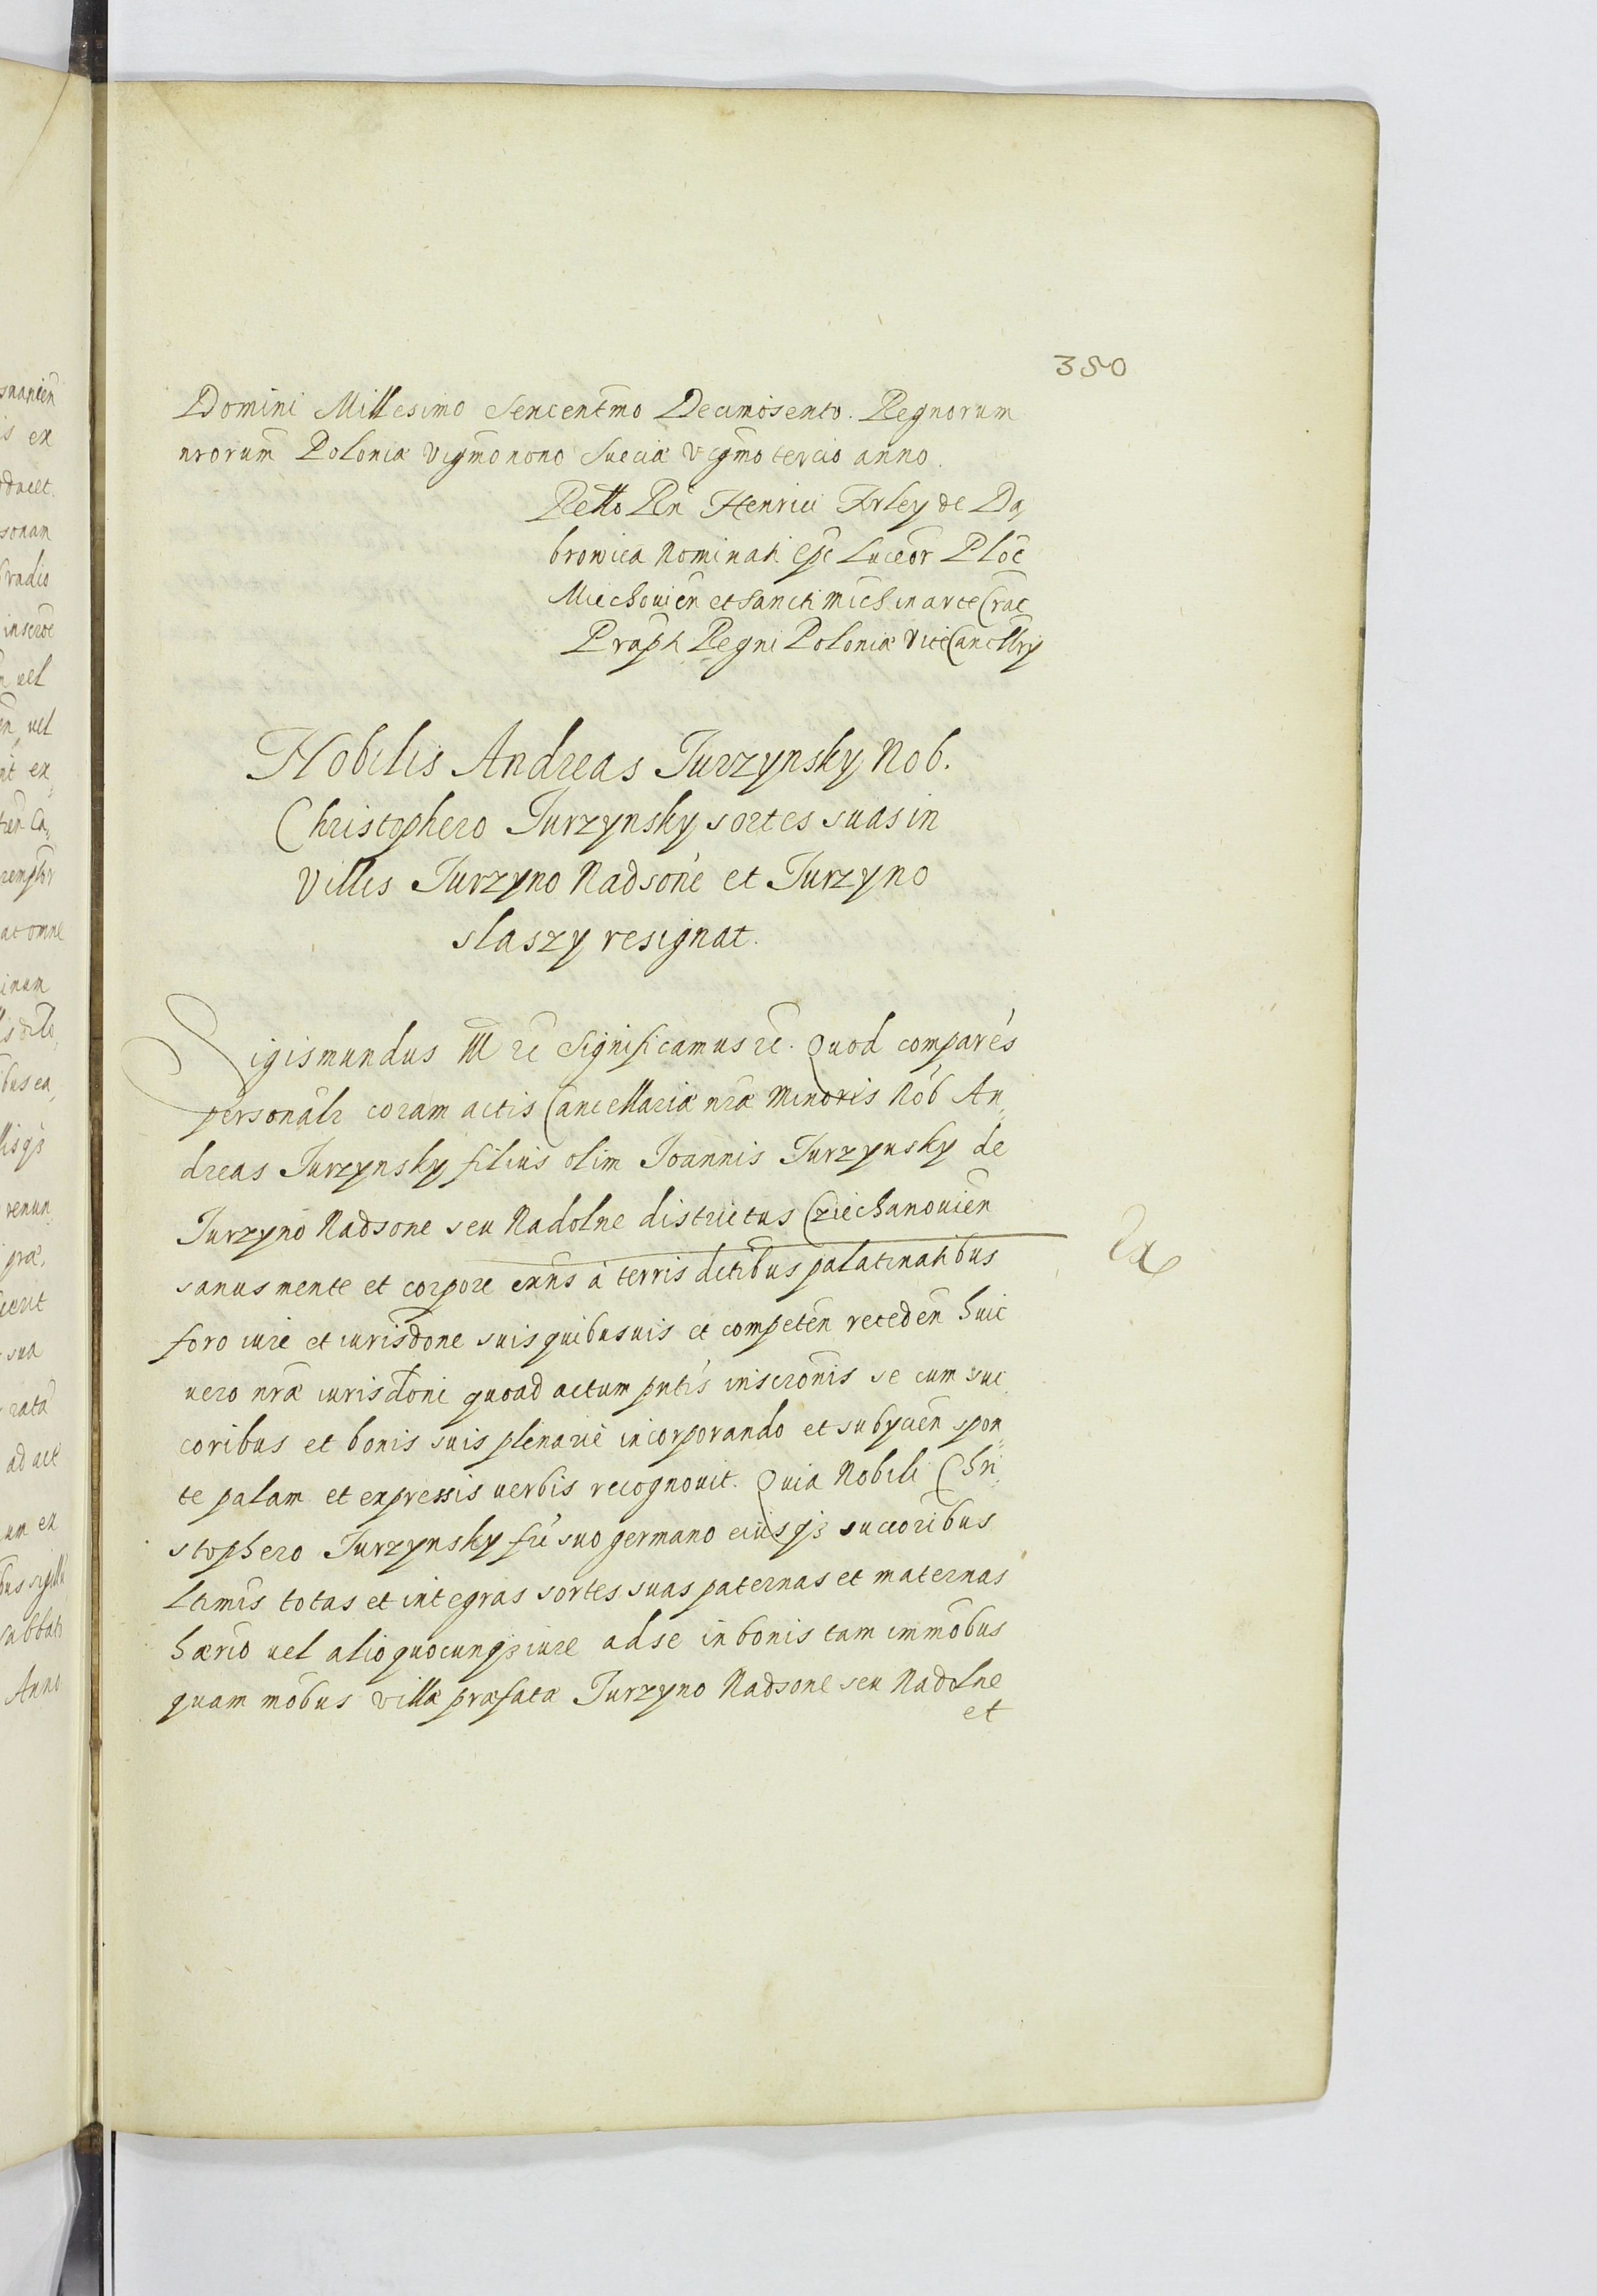 350
Domini Millesimo Sexcentmo Decimosexto. Regnorum
nrorum Poloniæ Vigmo nono Sueciæ vigmo tercio anno.
Retto Rn Henrici Firley de Da,
browica Nominati Epi Luceor Ploc
Miechouien et Sancti Mich in arce Crac
Præpti Regni Poloniæ ViceCancllrij
Nobilis Andreas Jurzynsky Nob.
Christophero Jurzynsky sortes suas in
villis Jurzyno Nadsone et Jurzyno
slaszy resignat.
Sigismundus III rc Significamus rc. Quod comparēs
personalr coram actis Cancellariæ nræ Minoris Nob An,,
dreas Jurzynsky filius olim Joannis Jurzynsky de
Jurzyno Nadsone seu Nadolne districtus Cziechanouien
sanus mente et corpore exns à terris ditibus palatinatibus
foro iure et iurisdone suis quibusuis et competen receden huic
vero nræ iurisdoni quoad actum pntis inscronis se cum suc
coribus et bonis suis plenariè incorporando et subijcien spon,,
te palam et expressis verbis recognouit. Quia Nobili Chri,,
stophero Jurzynsky fri suo germano eiusqз succoribus
ltimis totas et integras sortes suas paternas et maternas
hærio vel alio quocunqз iure ad se in bonis tam immobus
quam mobus villæ præfatæ Jurzyno Nadsone seu Nadolne
et